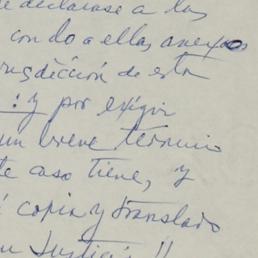 declarase a las
con do a ellas anexos
de esta
: y por exigir
un breve término
te caso tiene, y
copia y translado
Justici !!